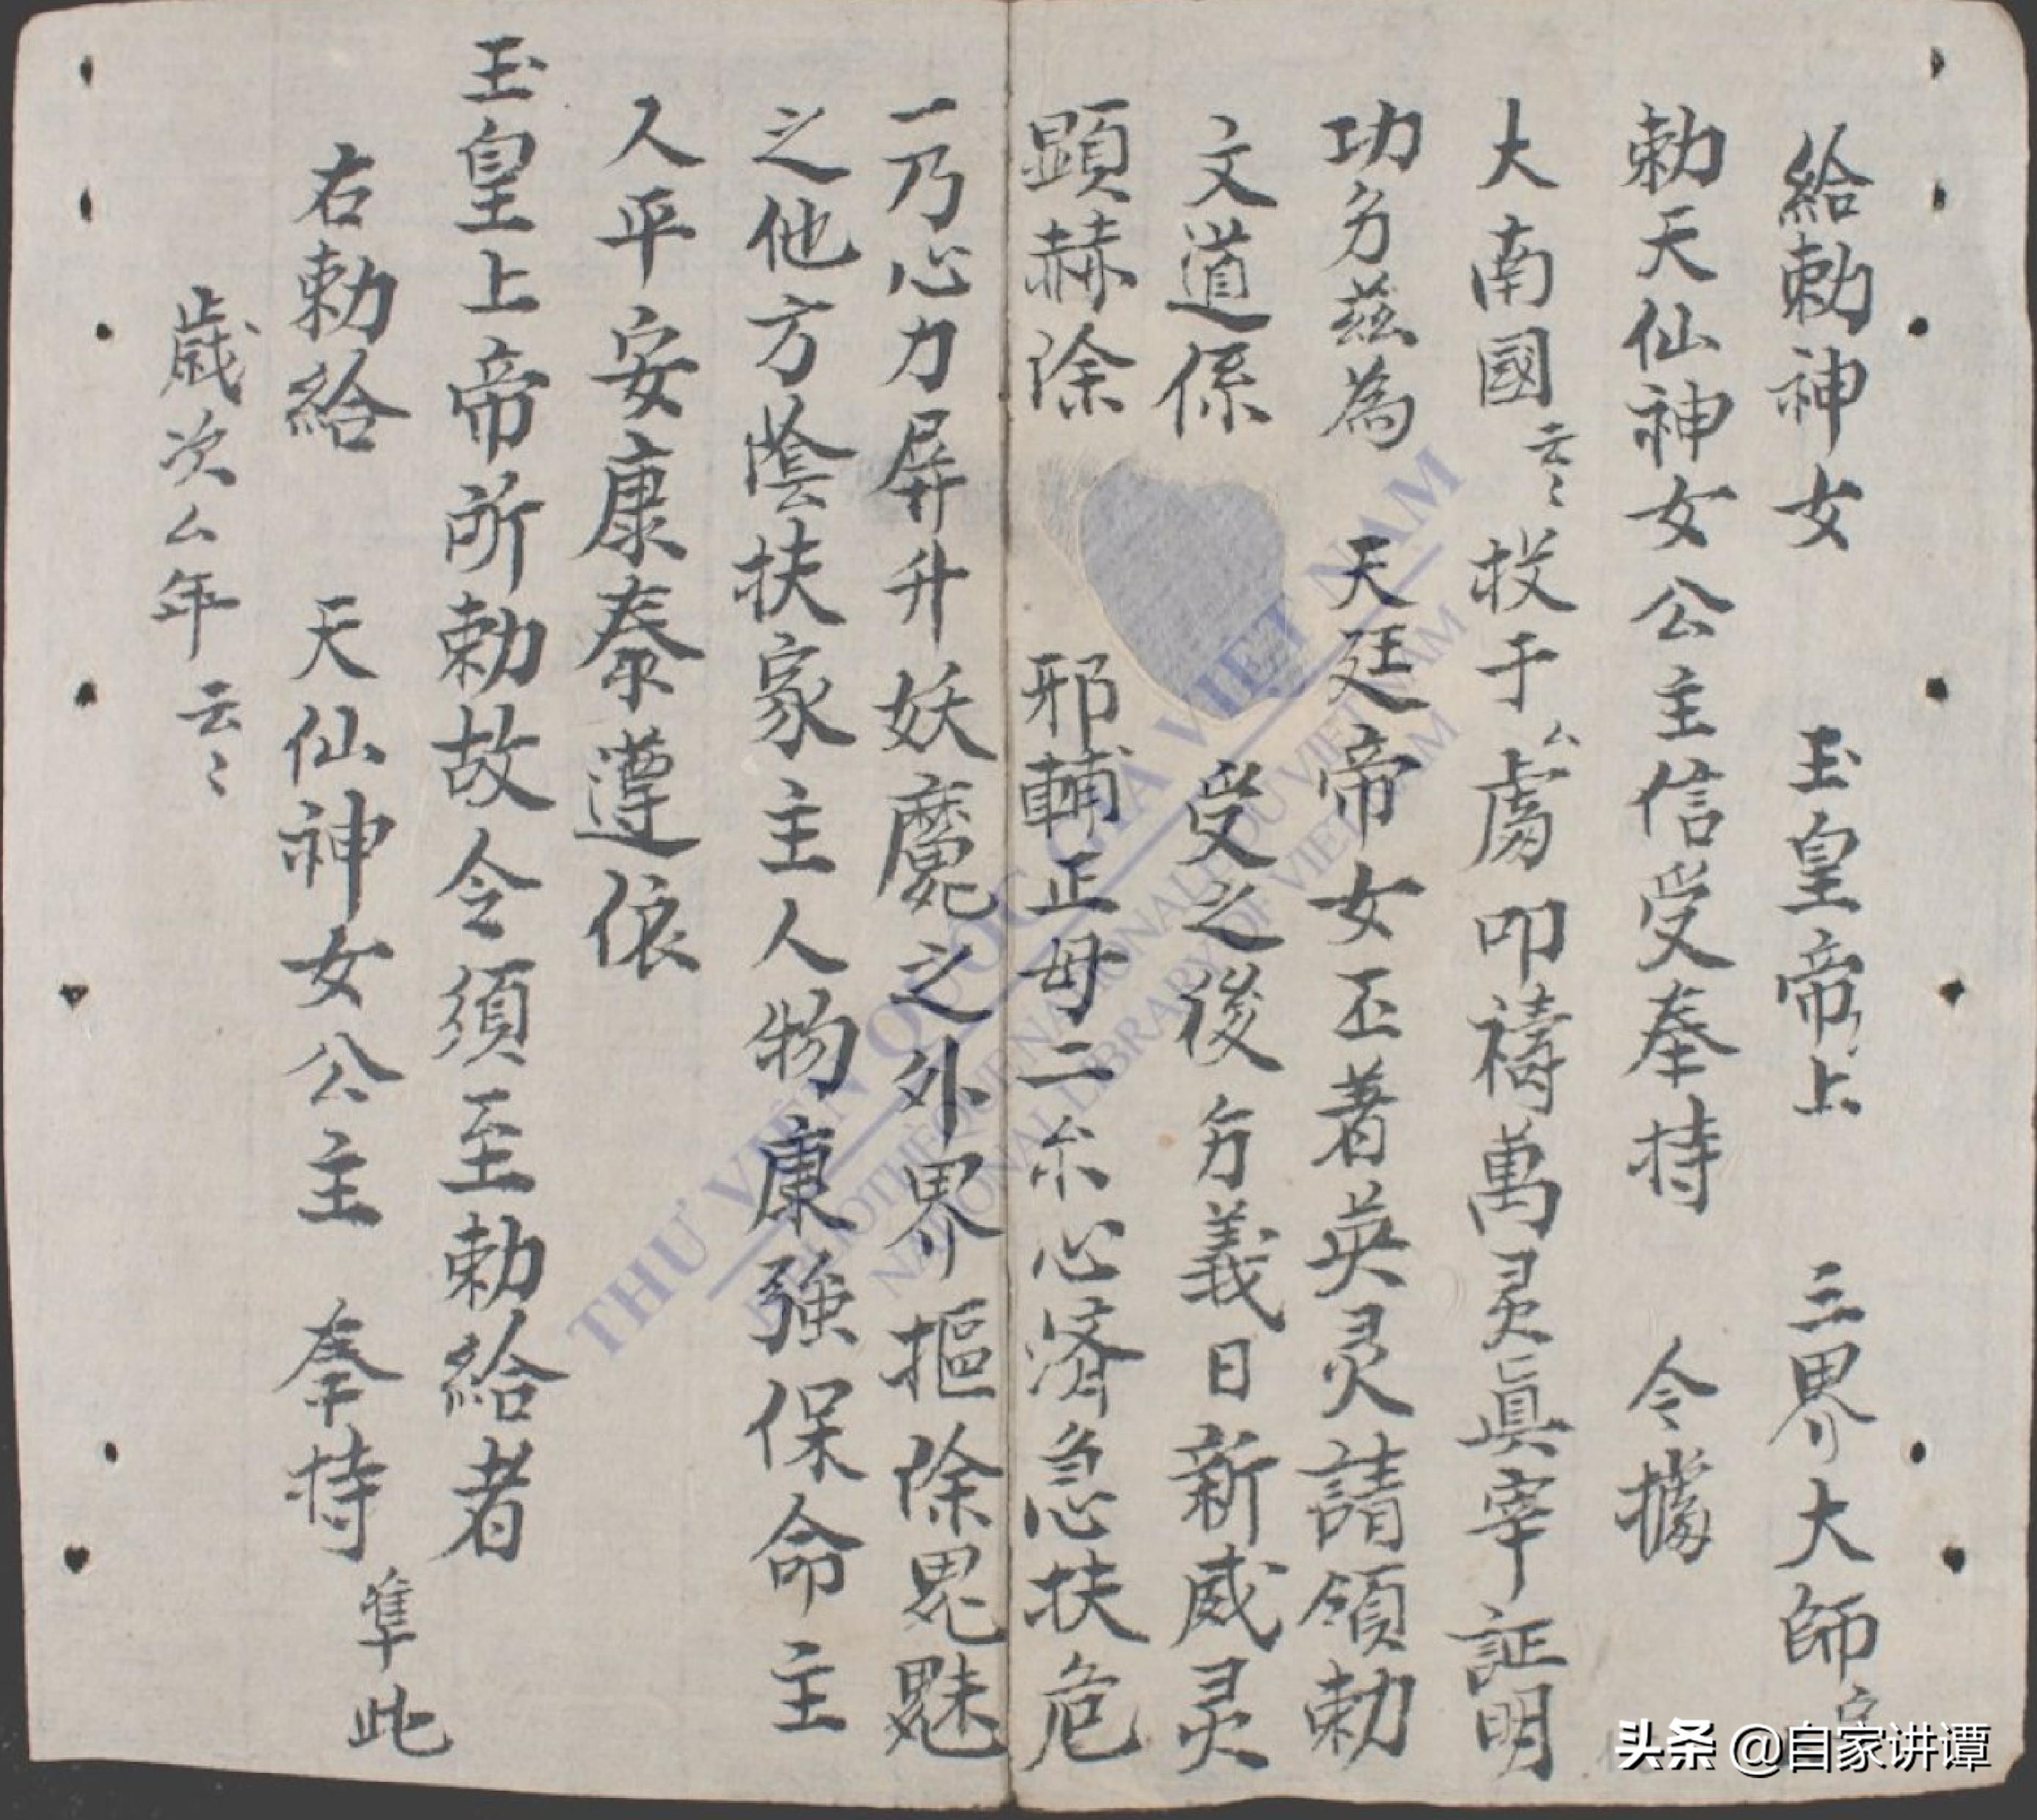 給勅神女　玉皇帝上　三界大師
勅天仙神女公主信受奉持　令據
大南國云〻投于厶處叩禱萬灵眞宰証明
功分茲為　天廷帝女丕著英灵請領勅
文道係　受之後分義日新威灵
顕赫除　邪輔正毋二尒心濟急扶危
一乃心力屏升妖魔之外界摳除鬼魅
之他方蔭扶家主人物康強保命主
人平安康泰遵依
玉皇上帝所勅故令須至勅給者
右勅給　天仙神女公主　奉持　準此
歲次厶年云〻
THƯ VIỆN QUỐC GIA VIỆT NAM
BIBLIOTHÈQUE NATIONALE DU VIET NAM
NATIONAL LIBRARY OF VIET NAM
头条 @自家讲谭